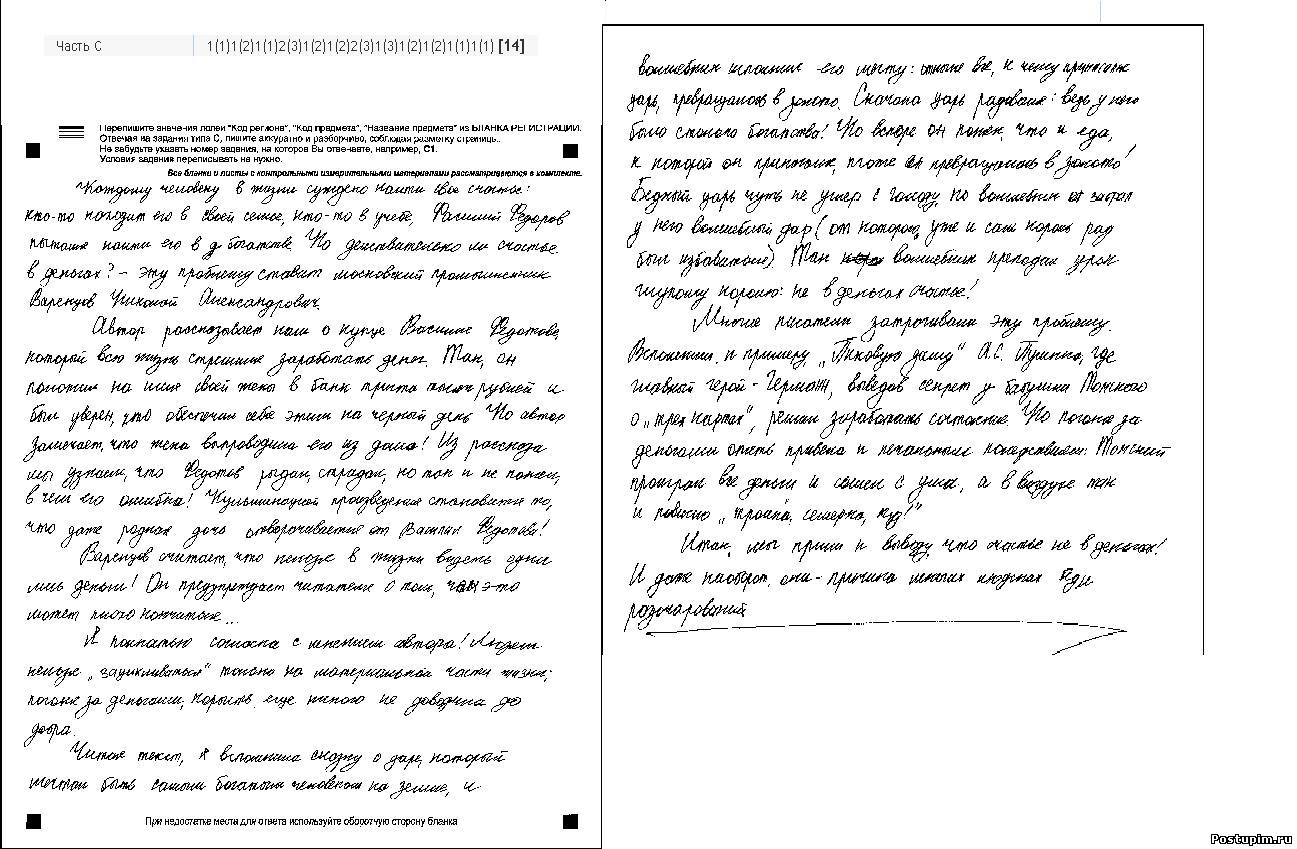 Часть С
1(1)1(2)1(1)2(3)1(2)1(2)2(3)1(3)1(2)1(2)1(1)1(1) [14]
Перепишите значения полей "Код региона", "Код предмета", "Название предмета" из БЛАНКА РЕГИСТРАЦИИ.
Отвечая на задания типа С, пишите аккуратно и разборчиво, соблюдая разметку страницы.
Не забудьте указать номер задания, на которое Вы отвечаете, например, С1.
Условия задания переписывать не нужно.
Все бланки и листы с контрольными измерительными материалами рассматриваются в комплекте.
Каждому человеку в жизни суждено найти свое счастье:
кто-то находит его в своей семье, кто-то в учебе, Василий Федоров
пытался найти его в богатстве. Но действительно ли счастье
в деньгах? – эту проблему ставит московский промышленник
Варенцов Николай Александрович.
Автор рассказывает нам о купце Василие Федотове,
который всю жизнь стремился заработать денег. Так, он
положил на имя своей жены в банк триста тысяч рублей и
был уверен, что обеспечил себя этим на черный день. Но автор
замечает, что жена выпроводила его из дома! Из рассказа
мы узнаем, что Федотов рыдал, страдал, но так и не понял,
в чем его ошибка! Кульминацией произведения становится то,
что даже родная дочь отворачивается от Василия Федотова!
Варенцов считает, что нельзя в жизни видеть одни
лишь деньги! Он предупреждает читателя о том, чем это
может плохо кончиться...
Я полностью согласна с мнением автора! Людям
нельзя „зацикливаться" только на материальной части жизни;
погоня за деньгами, корысть еще никого не доводила до
добра.
Читая текст, я вспомнила сказку о царе, который
мечтал быть самым богатым человеком на земле, и
При недостатке места для ответа используйте оборотную сторону бланка
волшебник исполнил его мечту: отныне все, к чему прикасался
царь, превращалось в золото. Сначала царь радовался: ведь у него
было столько богатства! Но вскоре он понял, что и еда,
к которой он прикасался, тоже превращалась в золото!
Бедный царь чуть не умер с голоду, но волшебник забрал
у него волшебный дар (от которого уже и сам король рад
был избавиться). Так волшебник преподал урок
глупому королю: не в деньгах счастье!
Многие писатели затрагивали эту проблему.
Вспомним, к примеру, „Пиковую даму" А.С. Пушкина, где
главный герой - Германн, выведав секрет у бабушки Томского
о „трех картах", решил заработать состояние. Но погоня за
деньгами опять привела к печальным последствиям: Томский
проиграл все деньги и сошел с ума, а в воздухе так
и повисло „тройка, семерка, туз!"
Итак, мы пришли к выводу, что счастье не в деньгах!
И даже наоборот, они - причина многих людских
разочарований.
Postupim.ru